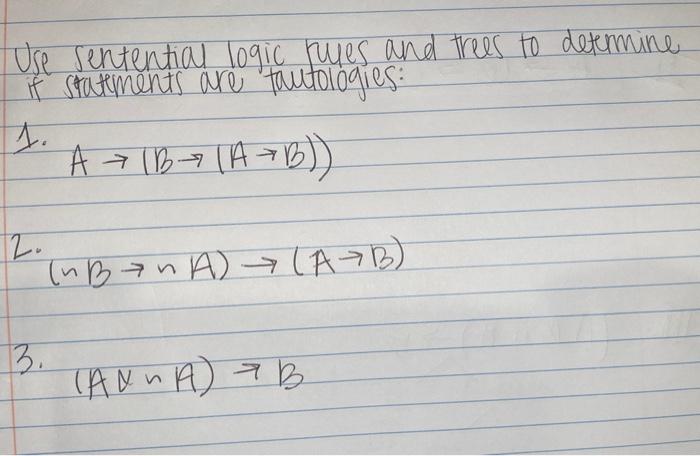 Use sentential logic rules and trees to determine
if statements are tautologies:
1.
A → (B → (A → B))
2.
(~B → ~A) → (A → B)
3.
(A & ~A) → B